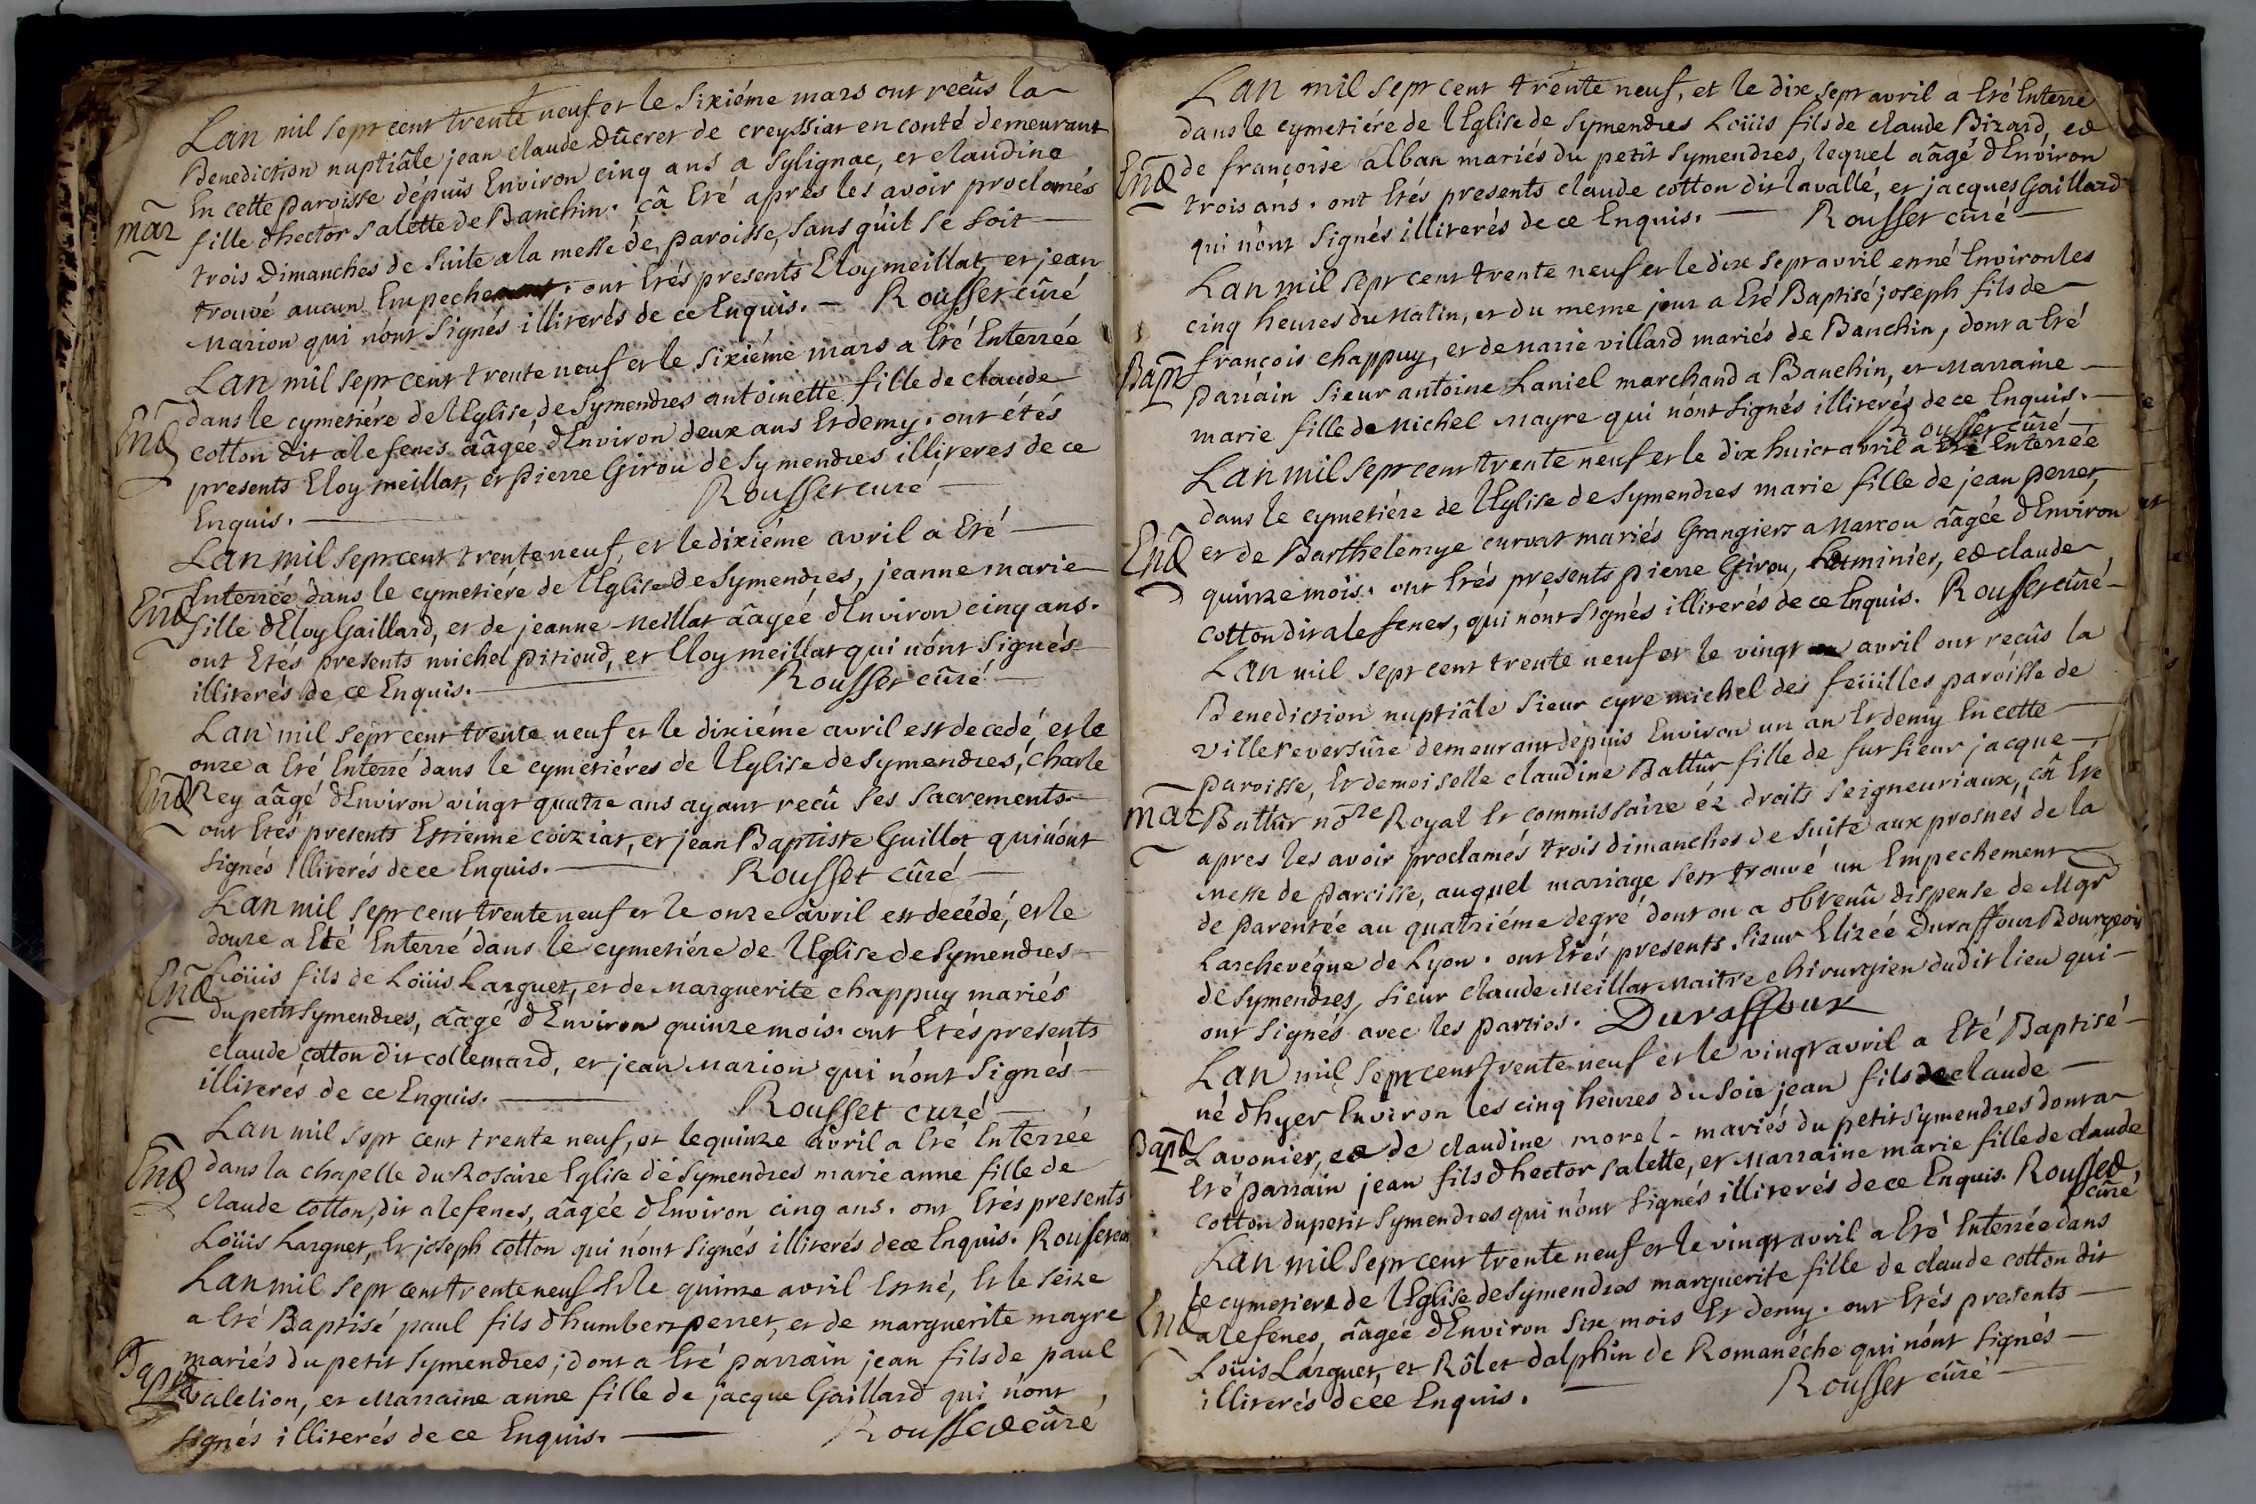 Lan mil sept cent trente neuf et le sixiéme mars ont reçûs la
Benediction nuptiâle jean claude Dûcret de creyssiat en conté demeurant
en cette paroisse dépuis Environ cinq ans a Sylignac, et claudine
mar fille dhector Salette de Banchin. çâ Eté apres les avoir proclamés
trois dimanches de suite a la messe de paroisse, sans quil se soit
trouvé aucun Empechement. ont Etés presents Eloy meillat, et jean
Marion qui nónt signés illiterés de ce Enquis. Rousset cûré
Lan mil sept cent trente neuf et le sixiéme mars a Eté Enterrée
dans le cymetiére de lEglise de Symendres antoinette fille de claude
End cotton dit alefenes aâgée dEnviron deux ans Et demy. ont étés
presents Eloy meillat, et pierre Girou de Symendres illiteres de ce
Enquis. Rousset curé
Lan mil sept cent trente neuf, et le dixiéme avril a Eté
Enterrée dans le cymetiére de lEglise de Symendres, jeanne marie
End fille dEloy Gaillard, et de jeanne Meillat aâgée dEnviron cinq ans.
ont Etés presents michel pitioud, et Eloy meillat qui nónt signés
illiterés de ce Enquis. Rousset cûré
Lan mil sept cent trente neuf et le dixiéme avril est decedé et le
onze a Eté Enterré dans le cymetiéres de lEglise de Symendres, charle
End Rey aâgé dEnviron vingt quatre ans ayant reçû ses sacrements.
ont Etés presents Estienne coiziat, et jean Baptiste Guillot qui nónt
signés illiterés de ce Enquis. Rousset cûré
Lan mil sept cent trente neuf et le onze avril est decédé, et le
douze a Eté Enterré dans le cymetiére de lEglise de Symendres
End Loüis fils de Loüis Larguet, et de Marguerite chappuy mariés
du petit Symendres, aâgé dEnviron quinze mois. ont Etés presents
claude cotton dit collemard, et jean Marion qui nónt signés
illiterés de ce Enquis. Rousset curé
Lan mil sept cent trente neuf, et le quinze avril a Eté Enterrée
End dans la chapelle du Rosaire Eglise de Symendres marie anne fille de
claude cotton, dit alefenes, aâgée dEnviron cinq ans. ont Etés presents
Loüis Larguet, Et joseph cotton qui nónt signés illiterés de ce Enquis. Rousset
Lan mil sept cent trente neuf Et le quinze avril Est né, Et le seize
a Eté Baptisé paul fils dhumbert perret, et de marguerite mayre
mariés du petit Symendres; dont a Eté parrain jean fils de paul
Valetion, et Marraine anne fille de jacque Gaillard qui nónt
signés illiterés de ce Enquis. Rousset cûré
Lan mil sept cent trente neuf, et le dix sept avril a Eté Enterré
dans le cymetiére de lEglise de Symendres Loüis fils de claude Bizard, et
End de françoise alban mariés du petit Symendres, lequel aâgé dEnviron
trois ans. ont Etés presents claude cotton dit lavallé, et jacques Gaillard
qui nónt signés illiterés de ce Enquis. Rousset cûré
Lan mil sept cent trente neuf et le dix sept avril est né Environ les
cinq heures du Matin, et du meme jour a Eté Baptisé joseph fils de
Bapt françois chappuy, et de Marie villard mariés de Banchin, dont a Eté
parrain Sieur antoine Laniel marchand a Banchin, et Marraine
marie fille de Michel Mayre qui nónt signés illiterés de ce Enquis.
Rousset cûré
Lan mil sept cent trente neuf et le dix huict avril a Eté Enterrée
dans le cymetiére de lEglise de Symendres marie fille de jean perret,
End et de Barthelemye curvat mariés Grangiers a Marcou aâgée dEnviron
quinze mois. ont Etés presents pierre Girou, et claude
cotton dit aléfenes, qui nónt signés illiterés de ce Enquis. Rousset cûré
Lan mil sept cent trente neuf et le vingt avril ont reçûs la
Benediction nuptiâle Sieur cyre michel des feüilles paroisse de
villereversûre demeurant depuis Environ un an Et demy En cette
paroisse, Et demoiselle claudine Battûr fille de fut Sieur jacque
mar Battûr nore Royal Et commissaire éz droits seigneuriaux, çâ Eté
apres les avoir proclamés trois dimanches de suite aux prosnes de la
messe de paroisse, auquel mariage sést trouvé un Empechement
de parentée au quatriéme degré dont on a obtenû dispense de Mgr
Larchevéque de Lyon. ont Etés presents Sieur Elizéé Duraffour Bourgeois
de Symendres, Sieur claude Meillat Maitre chirurgien dudit lieu qui
ont signés avec les parties. Duraffour
Lan mil sept cent trente neuf et le vingt avril a Eté Baptisé
né dhyer Environ les cinq heures du Soir jean fils de claude
Bapt Lavonier, et de claudine morel mariés du petit Symendres dont a
Eté parrain jean fils dhector Salette, et Marraine marie fille de claude
cotton du petit Symendres qui nónt signés illiterés de ce Enquis. Rousset
cûré
Lan mil sept cent trente neuf et le vingt avril a Eté Enterrée dans
le cymetiere de lEglise de Symendres marguerite fille de claude cotton dit
End alefenes, aâgée dEnviron six mois Et demy. ont Etés presents
Loüis Larguet, et Rôlet dalphin de Romanéche qui nónt signés
illiterés de ce Enquis. Rousset cûré